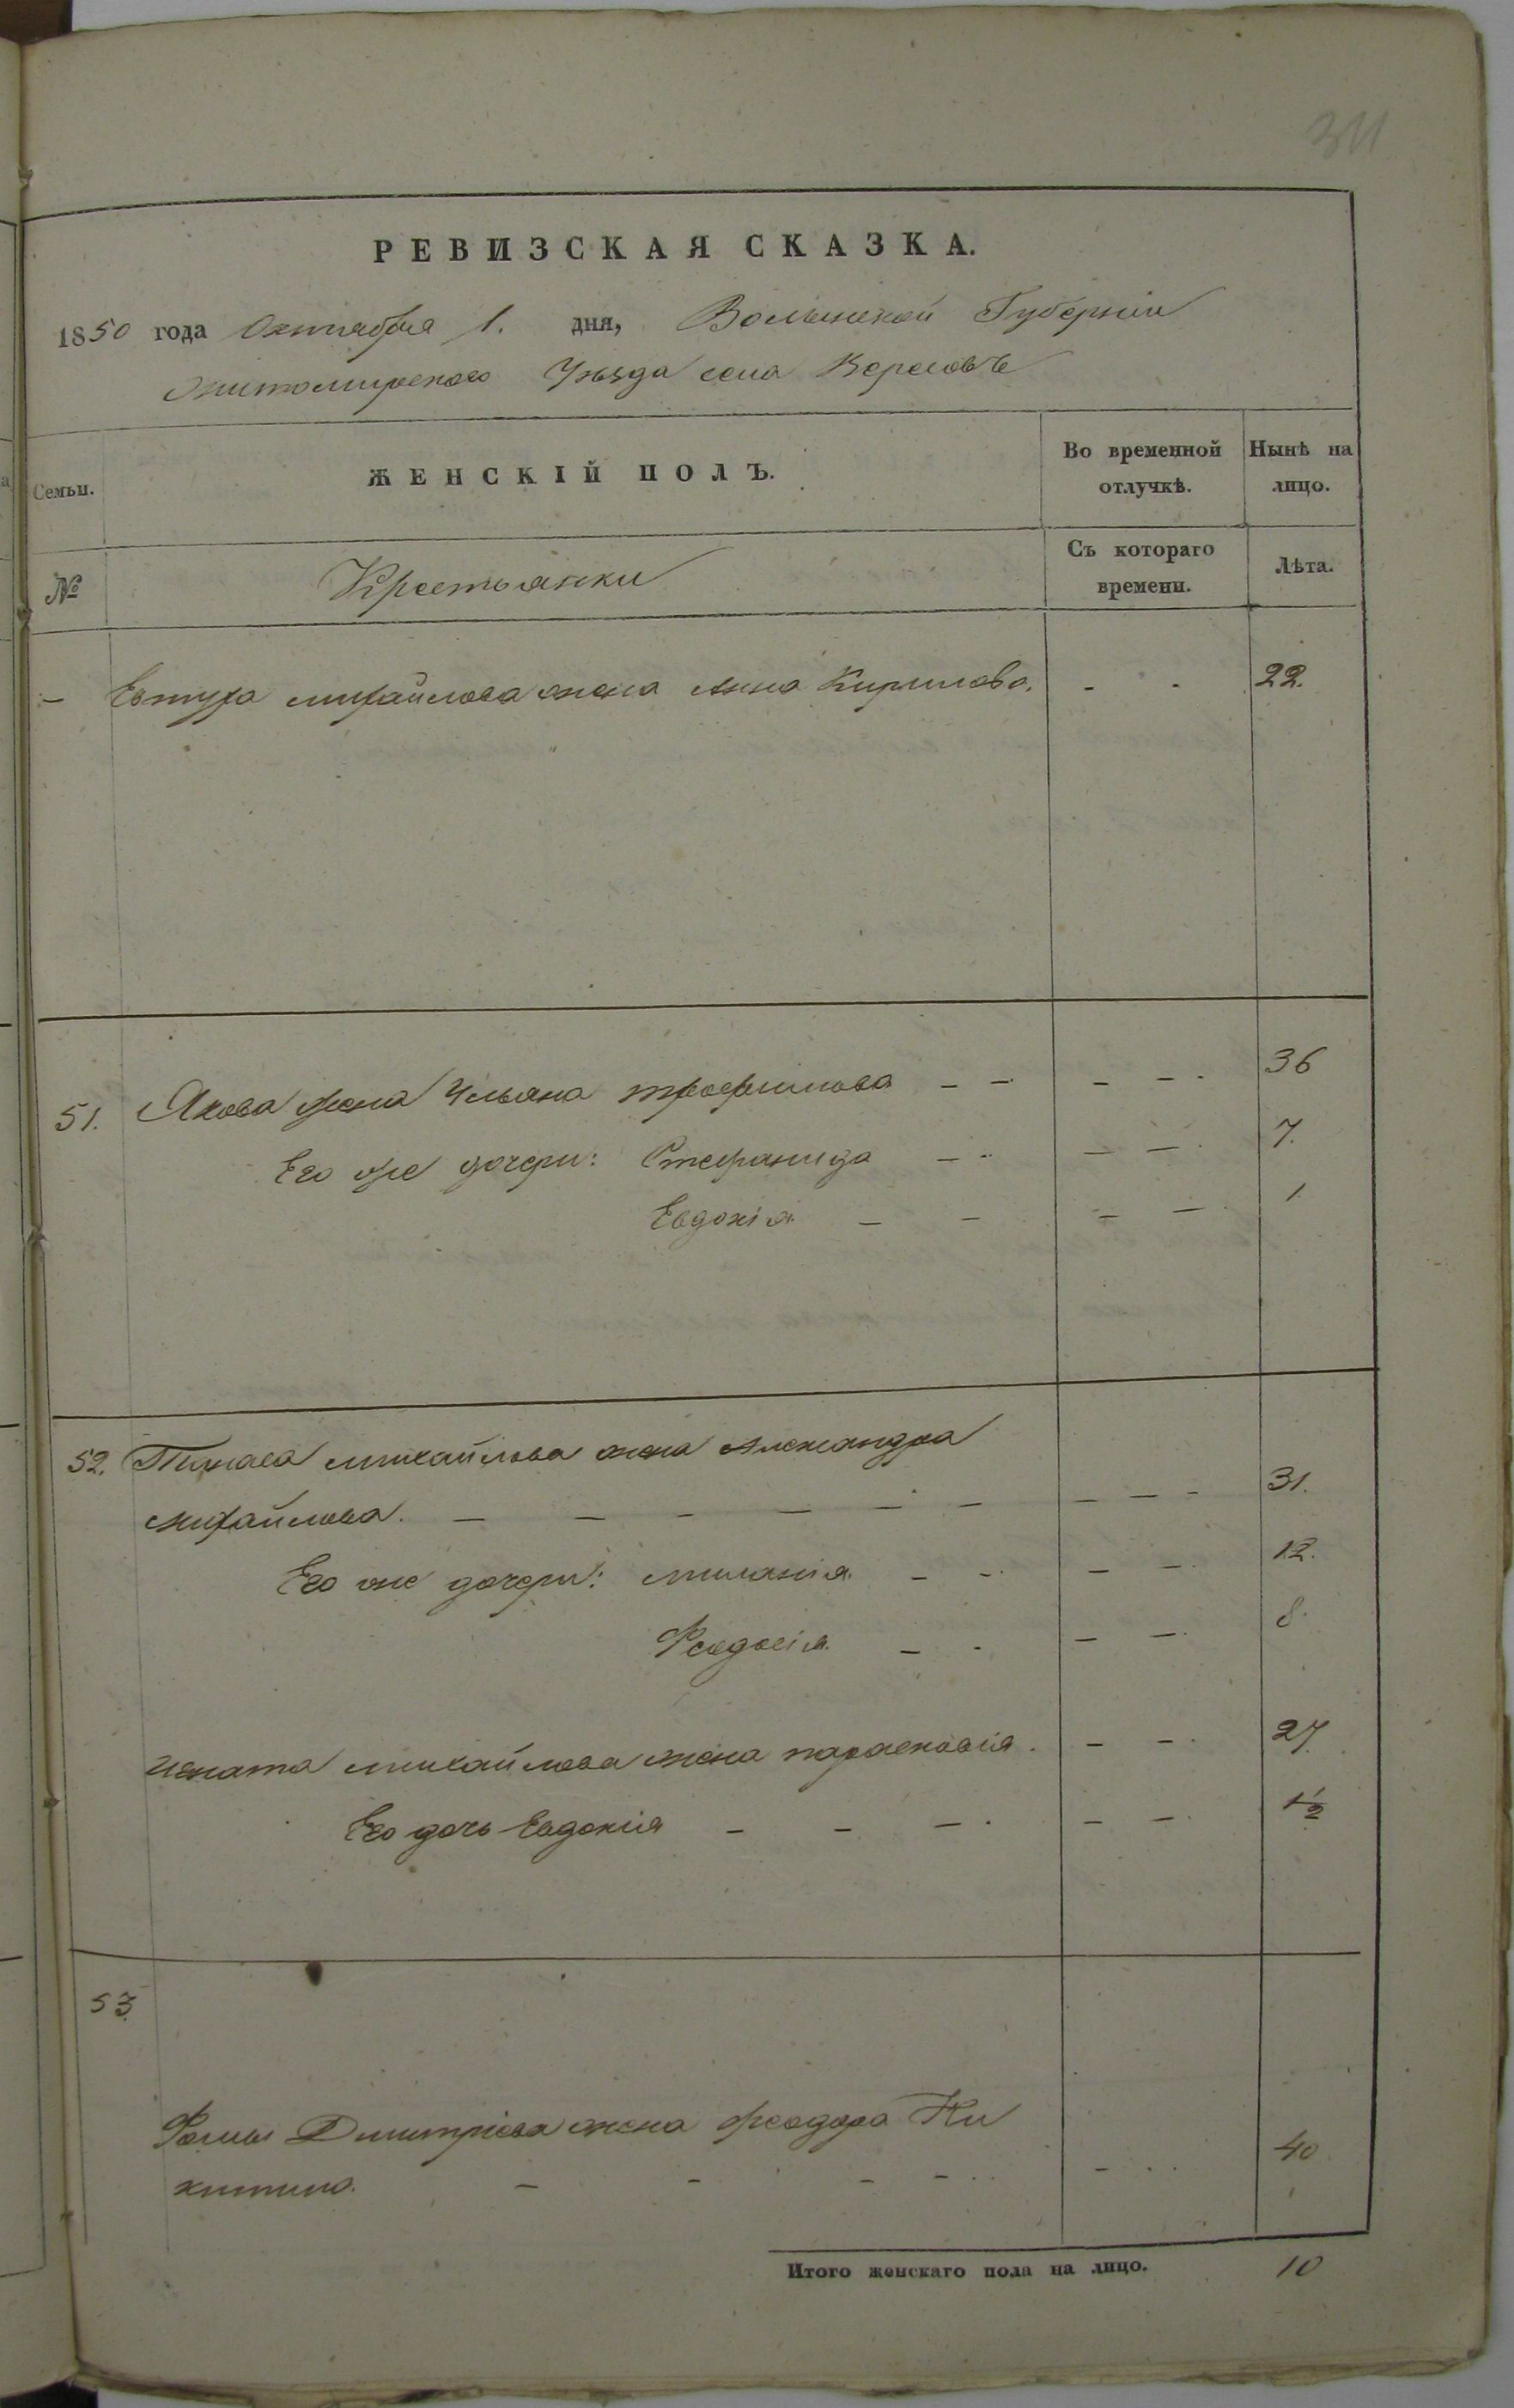 311
РЕВИЗСКАЯ СКАЗКА.
1850 года Октября 1. дня, Волынской Губерніи
Житомирского Уѣзда села Вересовъ
Семьи.
ЖЕНСКІЙ ПОЛЪ.
Во временной отлучкѣ.
Нынѣ на лицо.
№
Крестьянки
Съ котораго времени.
Лѣта.
— Евтуха михайлова жена Анна Кирилова. - - 22.
51. Якова жена Ульяна трофимова — — — — 36
Его же дочери: Стефанида — — — — 7.
Евдокія — — — — 1
52. михайлова жена Александра
михайлова. — — — — — — — — — 31.
Его же дочери: миланія — — — — 12.
Феодосія — - — — 8.
игната михайлова жена парасковія. — — 27
Его дочь Евдокия — — — — — 1/2
53
Фомы Дмитріева жена феодора Ни
китина. — — — — - 40
Итого женскаго пола на лицо. 10